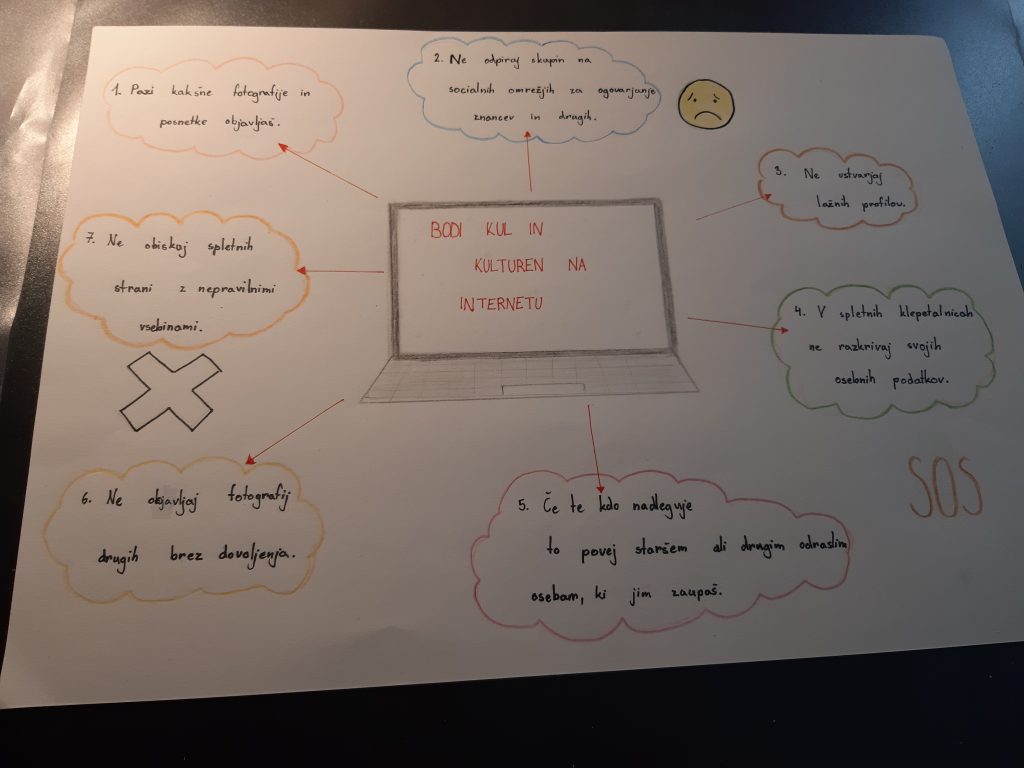 BODI KUL IN
KULTUREN NA
INTERNETU
1. Pazi kakšne fotografije in
posnetke objavljaš.
2. Ne odpiraj skupin na
socialnih omrežjih za ogovarjanje
znancev in drugih.
3. Ne ustvarjaj
lažnih profilov.
4. V spletnih klepetalnicah
ne razkrivaj svojih
osebnih podatkov.
SOS
5. Če te kdo nadleguje
to povej staršem ali drugim odraslim
osebam, ki jim zaupaš.
6. Ne objavljaj fotografij
drugih brez dovoljenja.
7. Ne obiskuj spletnih
strani z nepravilnimi
vsebinami.